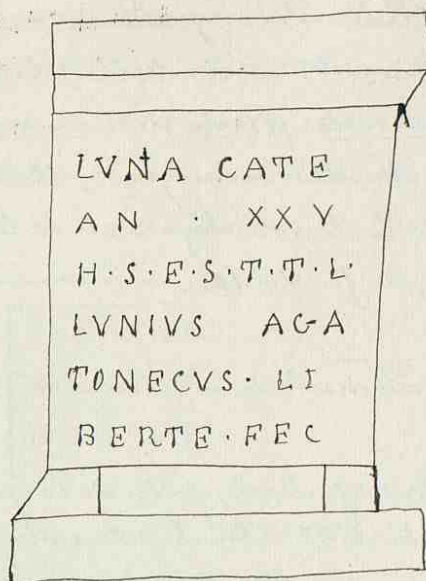 LVNA CATE
AN · XXV
H·S·E·S·T·T·L·
LVNIVS AGA
TONECVS· LI
BERTE·FEC